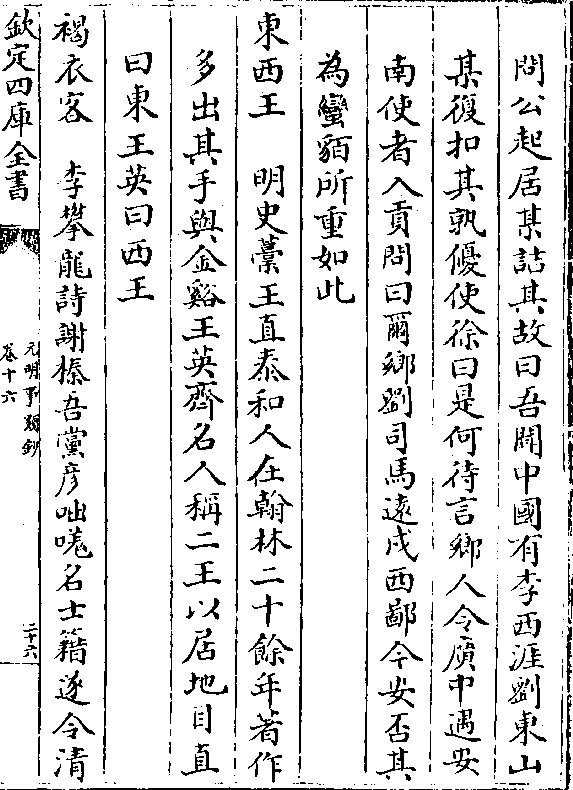 問公起居某詰其故曰吾聞中國有李西涯劉東山
某復扣其孰優使徐曰是何待言鄉人令廣中遇安
南使者入貢問曰爾鄉劉司馬遠戍西鄙今安否其
為蠻貊所重如此
東西王　明史藁王直泰和人在翰林二十餘年著作
多出其手與金谿王英齊名人稱二王以居地目直
曰東王英曰西王
褐衣客　李攀龍詩謝榛吾黨彦咄嗟名士籍遂令清
欽定四庫全書
元明事類鈔
卷十六
二十六